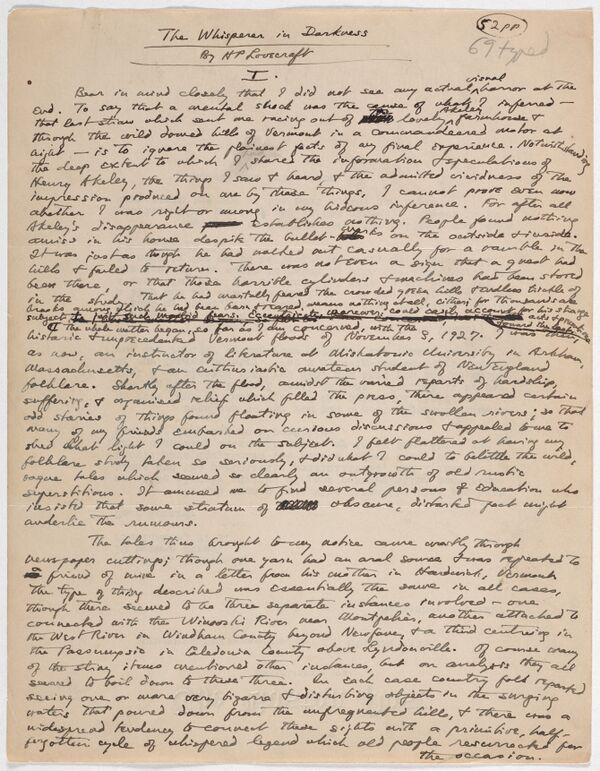 52 pp
69 typed
The Whisperer in Darkness
By HP Lovecraft
I.
Bear in mind closely that I did not see any actual visual horror at the
end. To say that a mental shock was the cause of what I inferred —
that last straw which sent me racing out of the lonely Akeley farmhouse &
through the wild domed hills of Vermont in a commandeered motor at
night — is to ignore the plainest facts of my final experience. Notwithstanding
the deep extent to which I shared the information & speculations of
Henry Akeley, the things I saw & heard, & the admitted vividness of the
impression produced on me by these things, I cannot prove even now
whether I was right or wrong in my hideous inference. For after all
Akeley's disappearance establishes nothing. People found nothing
amiss in his house despite the bullet-marks on the outside & inside.
It was just as though he had walked out casually for a ramble in the
hills & failed to return. There was not even a sign that a guest had
been there, or that those horrible cylinders & machines had been stored
in the study. That he had mortally feared the crowded green hills & endless trickle of
brooks among which he had been born & reared means nothing at all, either; for thousands are
subject to just such morbid fears. Eccentricity, moreover, could easily account for his strange
acts & apprehensions toward the last.
¶ The whole matter began, so far as I am concerned, with the
historic & unprecedented Vermont floods of November 3, 1927. I was then,
as now, an instructor of literature at Miskatonic University in Arkham,
Massachusetts, & an enthusiastic amateur student of New England
folklore. Shortly after the flood, amidst the varied reports of hardship,
suffering, & organised relief which filled the press, there appeared certain
odd stories of things found floating in some of the swollen rivers; so that
many of my friends embarked on curious discussions & appealed to me to
shed what light I could on the subject. I felt flattered at having my
folklore study taken so seriously, & did what I could to belittle the wild,
vague tales which seemed so clearly an outgrowth of old rustic
superstitions. It amused me to find several persons of education who
insisted that some stratum of obscure, distorted fact might
underlie the rumours.
The tales thus brought to my notice came mostly through
newspaper cuttings; though one yarn had an oral source & was repeated to
a friend of mine in a letter from his mother in Hardwick, Vermont.
The type of thing described was essentially the same in all cases,
though there seemed to be three separate instances involved — one
connected with the Winooski River near Montpelier, another attached to
the West River in Windham County beyond Newfane, & a third centreing in
the Passumpsic in Caledonia County above Lyndonville. Of course many
of the stray items mentioned other instances, but on analysis they all
seemed to boil down to these three. In each case country folk reported
seeing one or more very bizarre & disturbing objects in the surging
waters that poured down from the unfrequented hills, & there was a
widespread tendency to connect these sights with a primitive, half-
forgotten cycle of whispered legend which old people resurrected for
the occasion.